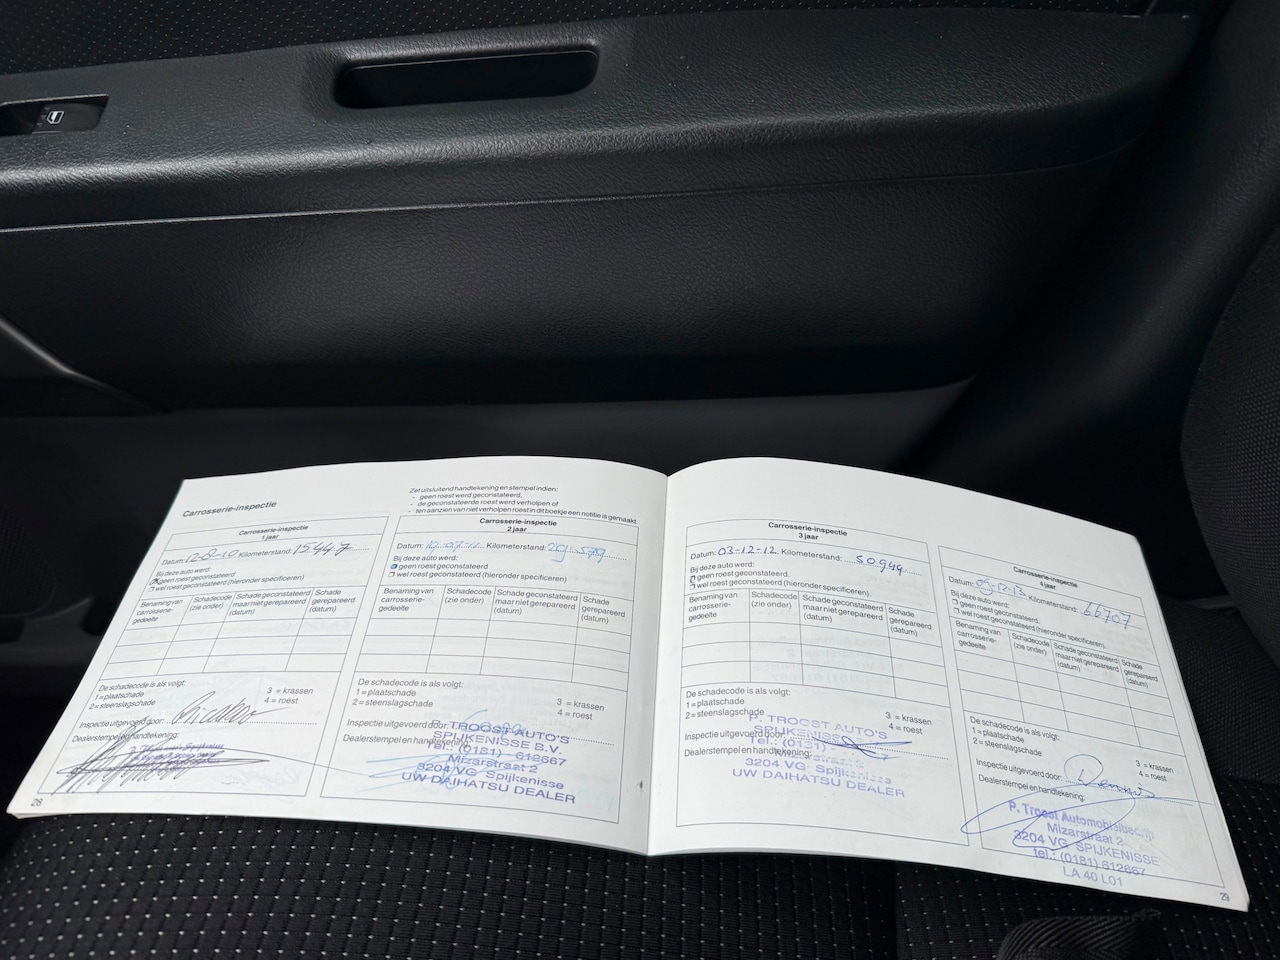 Carrosserie-inspectie
Zet uitsluitend handtekening en stempel indien:
- geen roest werd geconstateerd,
- de geconstateerde roest werd verholpen of
- ten aanzien van niet verholpen roest in dit boekje een notitie is gemaakt.
Carrosserie-inspectie
1 jaar
Datum: 12-8-10 Kilometerstand: 15447
Bij deze auto werd:
geen roest geconstateerd
wel roest geconstateerd (hieronder specificeren)
Benaming van carrosserie-gedeelte
Schadecode (zie onder)
Schade geconstateerd maar niet gerepareerd (datum)
Schade gerepareerd (datum)
De schadecode is als volgt:
1 = plaatschade 3 = krassen
2 = steenslagschade 4 = roest
Inspectie uitgevoerd door:
Dealerstempel en handtekening:
28
Carrosserie-inspectie
2 jaar
Datum: Kilometerstand: 29.579
Bij deze auto werd:
geen roest geconstateerd
wel roest geconstateerd (hieronder specificeren)
Benaming van carrosserie-gedeelte
Schadecode (zie onder)
Schade geconstateerd maar niet gerepareerd (datum)
Schade gerepareerd (datum)
De schadecode is als volgt:
1 = plaatschade 3 = krassen
2 = steenslagschade 4 = roest
Inspectie uitgevoerd door:
Dealerstempel en handtekening:
P. TROOST AUTO'S
SPIJKENISSE B.V.
Tel.: (0181) - 612667
Mizarstraat 2
3204 VG Spijkenisse
UW DAIHATSU DEALER
Carrosserie-inspectie
3 jaar
Datum: 03-12-12 Kilometerstand: 50949
Bij deze auto werd:
geen roest geconstateerd.
wel roest geconstateerd (hieronder specificeren).
Benaming van carrosserie-gedeelte
Schadecode (zie onder)
Schade geconstateerd maar niet gerepareerd (datum)
Schade gerepareerd (datum)
De schadecode is als volgt:
1 = plaatschade 3 = krassen
2 = steenslagschade 4 = roest
Inspectie uitgevoerd door:
Dealerstempel en handtekening:
P. TROOST AUTO'S
SPIJKENISSE
Tel.: (0131)
Mizarstraat 2
3204 VG Spijkenisse
UW DAIHATSU DEALER
Carrosserie-inspectie
4 jaar
Datum: 09-12-13 Kilometerstand: 66707
Bij deze auto werd:
geen roest geconstateerd.
wel roest geconstateerd (hieronder specificeren).
Benaming van carrosserie-gedeelte
Schadecode (zie onder)
Schade geconstateerd maar niet gerepareerd (datum)
Schade gerepareerd (datum)
De schadecode is als volgt:
1 = plaatschade 3 = krassen
2 = steenslagschade 4 = roest
Inspectie uitgevoerd door: Dennis
Dealerstempel en handtekening:
P. Troost Automobielbedrijf
Mizarstraat 2
3204 VG SPIJKENISSE
tel.: (0181) 612667
LA 40 L01
29